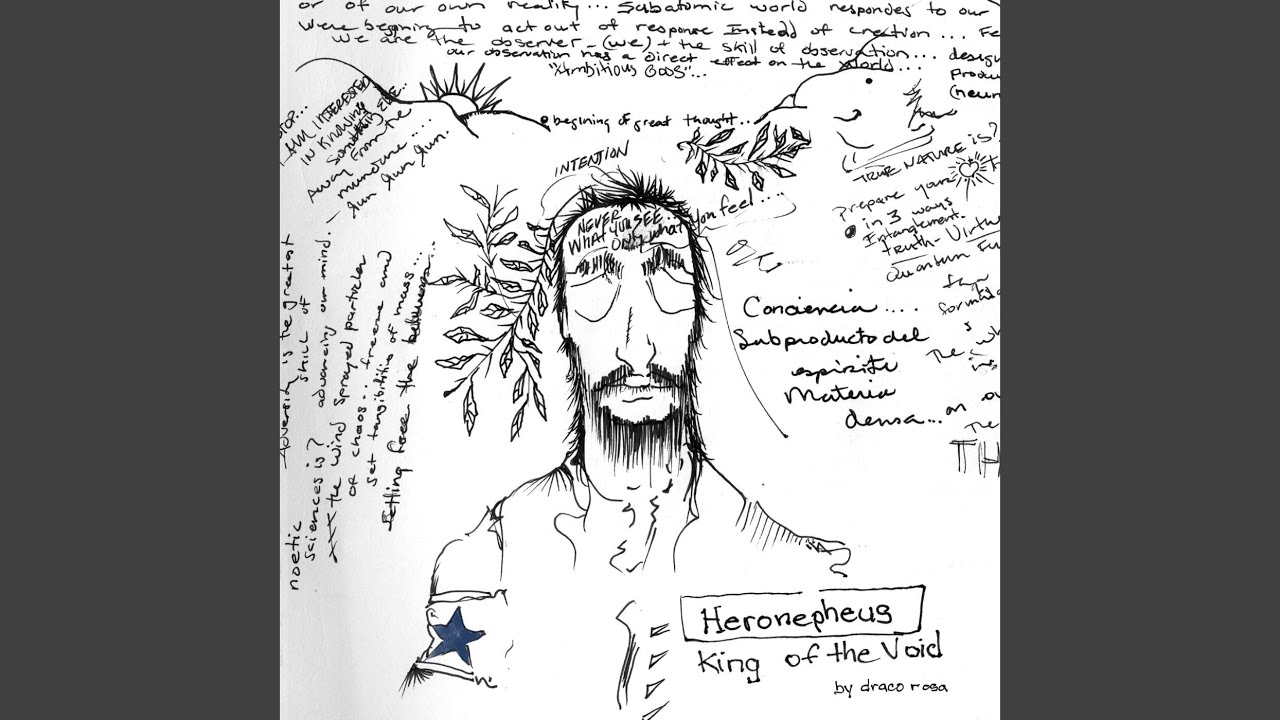 or of our own reality... Subatomic world respondes to our
were begining to act out of response Instead of creation... Fe
We are the observer - (we) + the skill of observation...
our observation has a direct effect on the world...
"Ambitious GODS"...
design
produ
(neur
I AM INTERESTED
IN KNOWING
SOMETHING ELSE...
AWAY FROM THE
mundane....
run run run.
begining of great thought...
INTENTION
NEVER
WHAT YOU SEE...
only what you feel....
TRUE NATURE IS?
Prepare your
in 3 ways
Entanglement.
truth - Virtue
Quantum Fu
formula
The w
Conciencia....
Subproducto del
espiritu
Materia
densa...
on ou
The
TH
Adversity is the greatest
skill of
advancing our mind.
noetic
sciences is?
XXX the wind sprayed particles
of chaos... freeze and
set tangibilities of mass...
setting free the
Heronepheus
King of the Void
by draco rosa